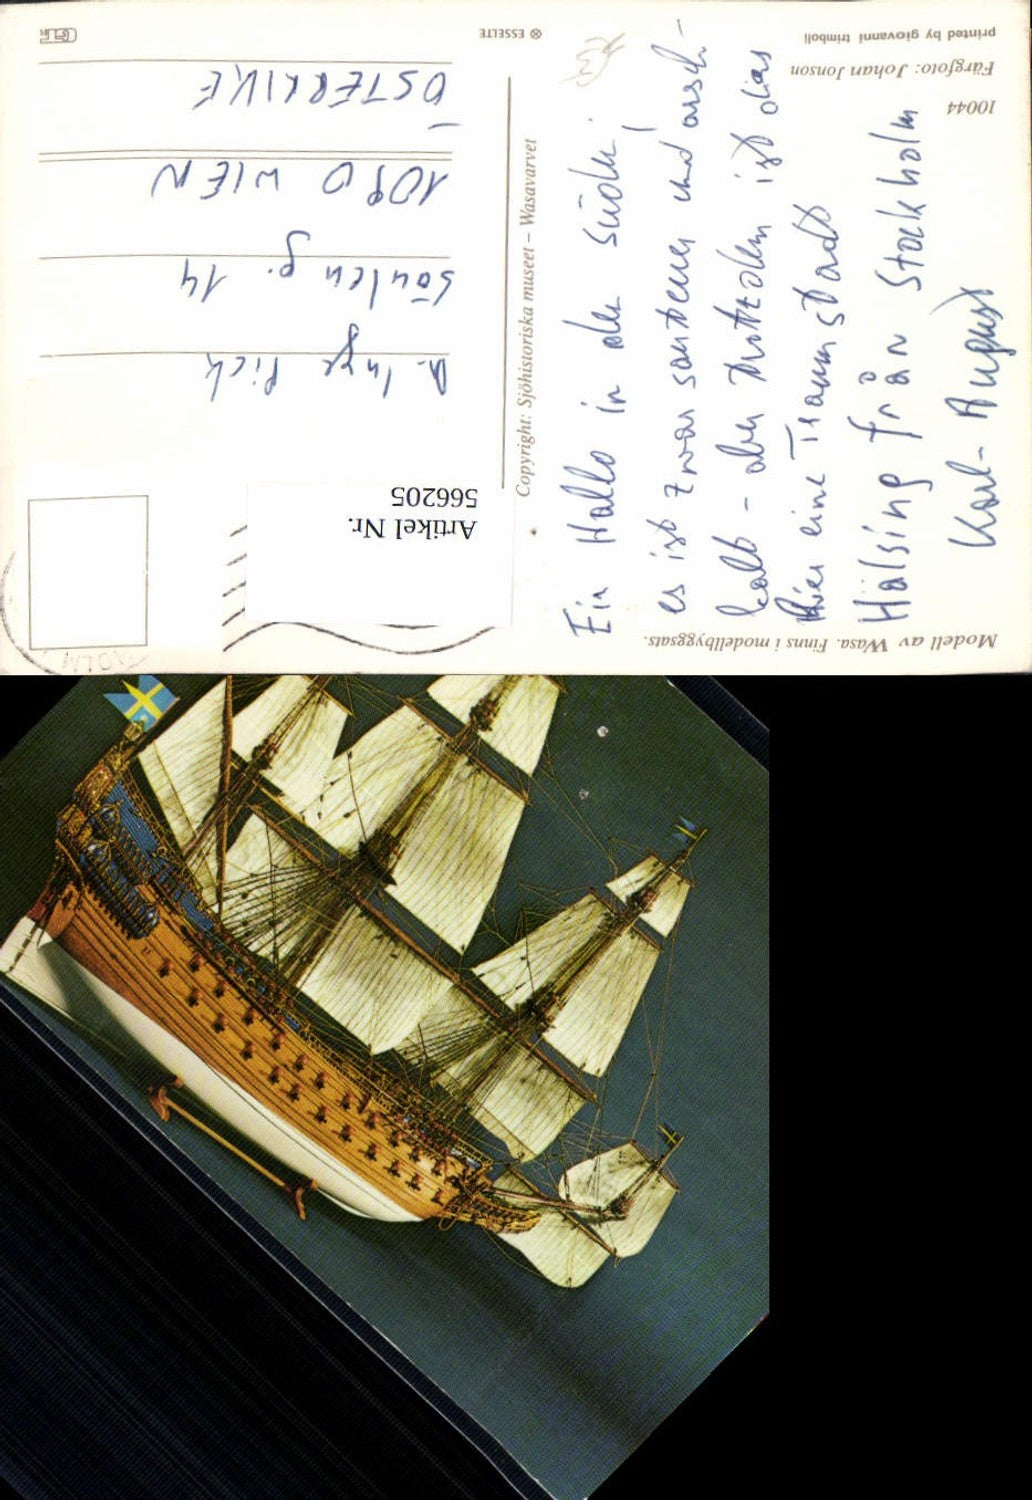 Modell av Wasa. Finns i modellbyggsats.
Ein Hallo in den Süden!
es ist zwar sauteuer und arsch-
kalt - aber trotzdem ist das
hier eine Traumstadt
Hälsing från Stockholm
Karl-August
10044
Färgfoto: Johan Jonson
printed by giovanni trimboli
Copyright: Sjöhistoriska museet – Wasavarvet
ESSELTE
Artikel Nr.
566205
Inge Pick
Säulen g. 14
1090 WIEN
ÖSTERRIKE